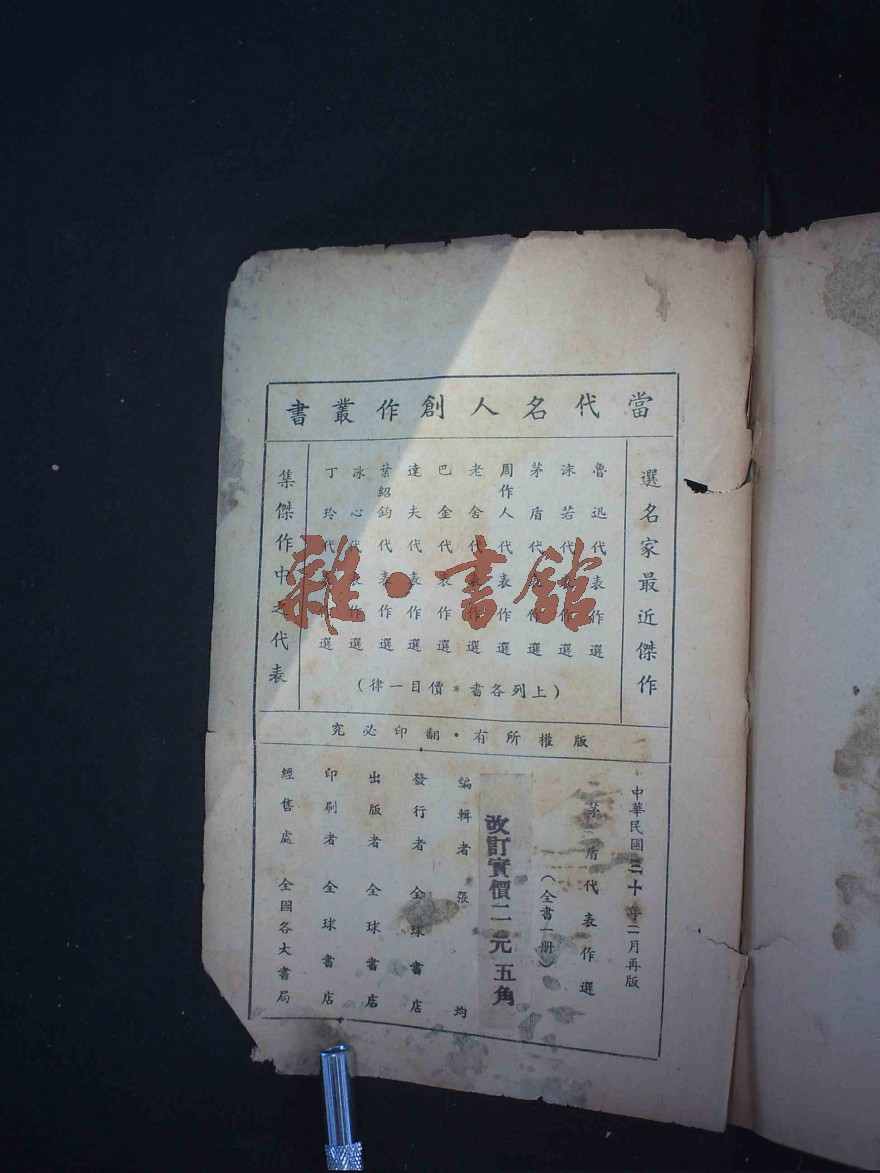 當代名人創作叢書
選名家最近傑作
魯迅代表作選
沫若代表作選
茅盾代表作選
周作人代表作選
老舍代表作選
巴金代表作選
達夫代表作選
葉紹鈞代表作選
冰心代表作選
丁玲代表作選
(上列各書·價目一律)
集傑作中之代表
版權所有·翻印必究
中華民國三十年二月再版
茅盾代表作選
(全書一册)
改訂實價二元五角
編輯者 張均
發行者 全球書店
出版者 全球書店
印刷者 全球書店
經售處 全國各大書局
雜·書館